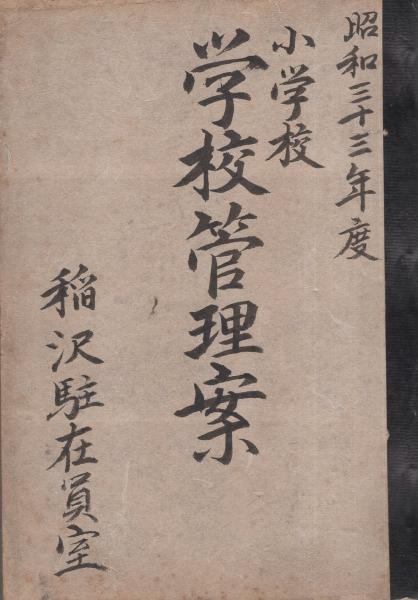 昭和三十三年度
小学校
学校管理案
稲沢駐在員室